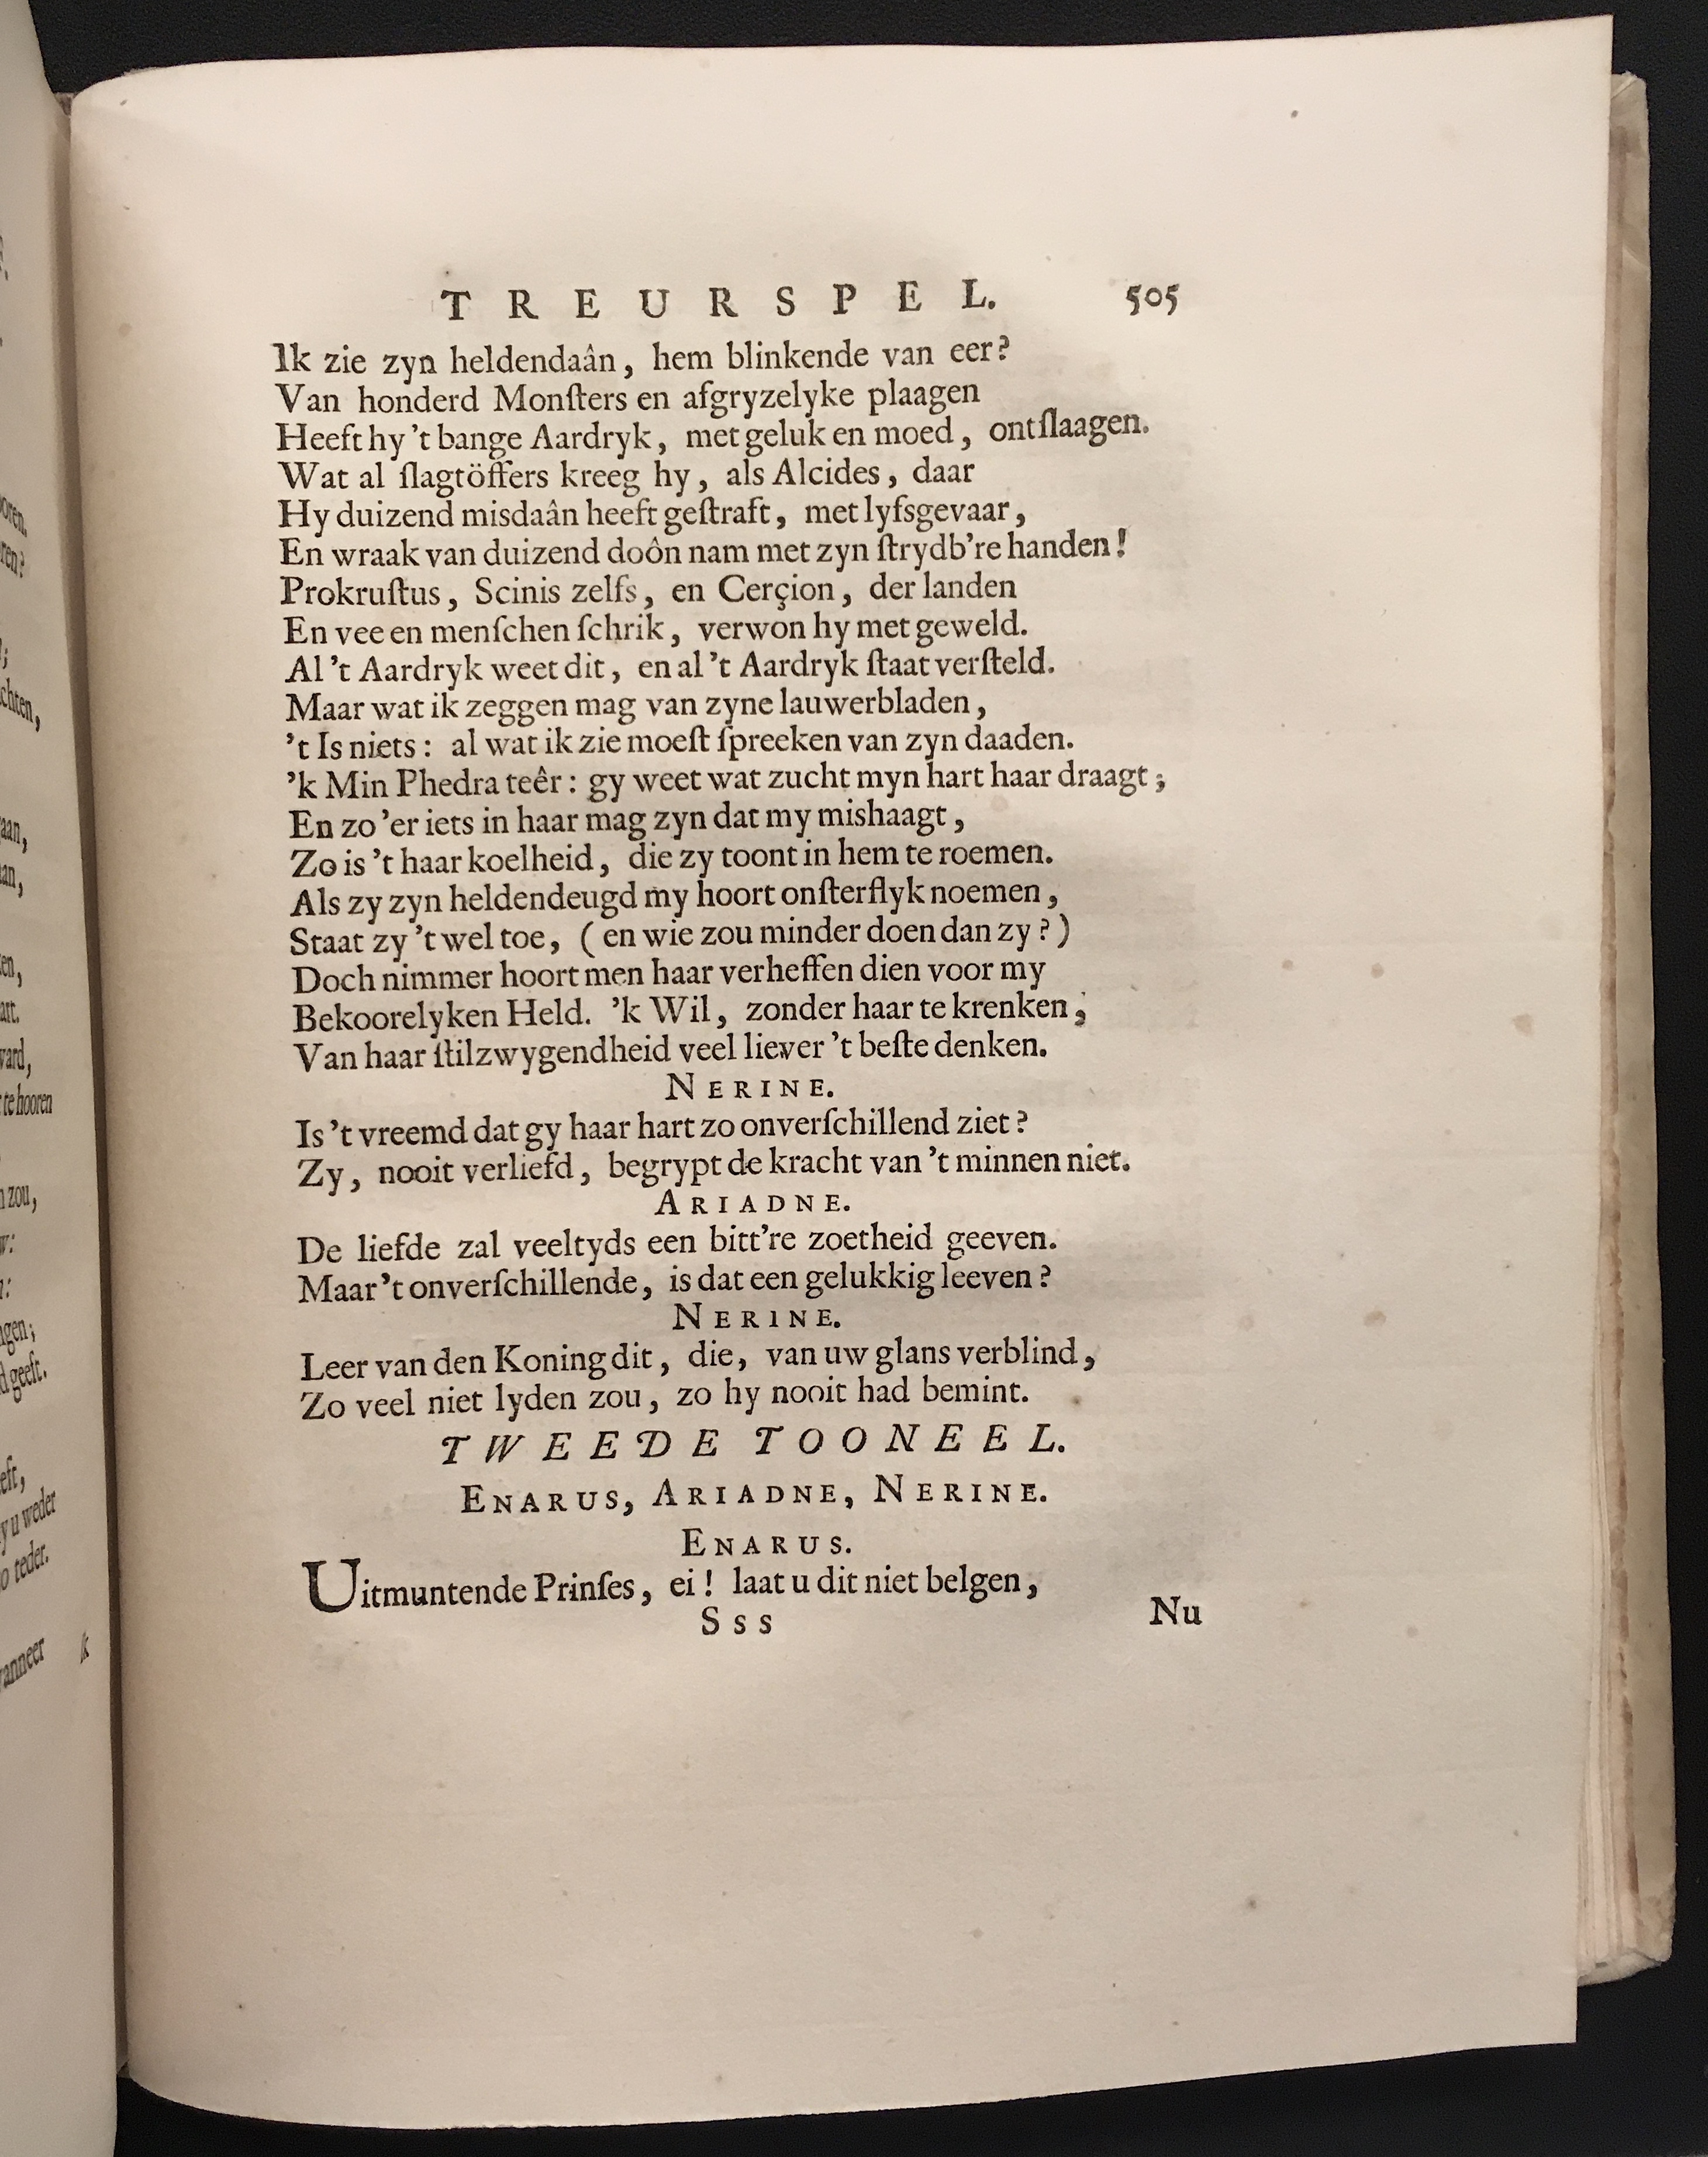 TREURSPEL. 505
Ik zie zyn heldendaân, hem blinkende van eer?
Van honderd Monſters en afgryzelyke plaagen
Heeft hy 't bange Aardryk, met geluk en moed, ontſlaagen.
Wat al ſlagtöffers kreeg hy, als Alcides, daar
Hy duizend misdaân heeft geſtraft, met lyfsgevaar,
En wraak van duizend doôn nam met zyn ſtrydb're handen!
Prokruſtus, Scinis zelfs, en Cerçion, der landen
En vee en menſchen ſchrik, verwon hy met geweld.
Al 't Aardryk weet dit, en al 't Aardryk ſtaat verſteld.
Maar wat ik zeggen mag van zyne lauwerbladen,
't Is niets: al wat ik zie moeſt ſpreeken van zyn daaden.
'k Min Phedra teêr: gy weet wat zucht myn hart haar draagt;
En zo 'er iets in haar mag zyn dat my mishaagt,
Zo is 't haar koelheid, die zy toont in hem te roemen.
Als zy zyn heldendeugd my hoort onſterflyk noemen,
Staat zy 't wel toe, (en wie zou minder doen dan zy?)
Doch nimmer hoort men haar verheffen dien voor my
Bekoorelyken Held. 'k Wil, zonder haar te krenken,
Van haar ſtilzwygendheid veel liever 't beſte denken.
NERINE.
Is 't vreemd dat gy haar hart zo onverſchillend ziet?
Zy, nooit verliefd, begrypt de kracht van 't minnen niet.
ARIADNE.
De liefde zal veeltyds een bitt're zoetheid geeven.
Maar 't onverſchillende, is dat een gelukkig leeven?
NERINE.
Leer van den Koning dit, die, van uw glans verblind,
Zo veel niet lyden zou, zo hy nooit had bemint.
TWEEDE TOONEEL.
ENARUS, ARIADNE, NERINE.
ENARUS.
Uitmuntende Prinſes, ei! laat u dit niet belgen,
Sss Nu